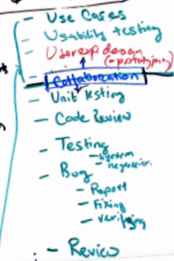 - Use Cases
- Usability testing
- User exp design
(-prototyping)
- Collaboration
- Unit testing
- Code Review
- Testing
- System
- regression.
- Bug
- Report
- Fixing
- Verifying
- Review